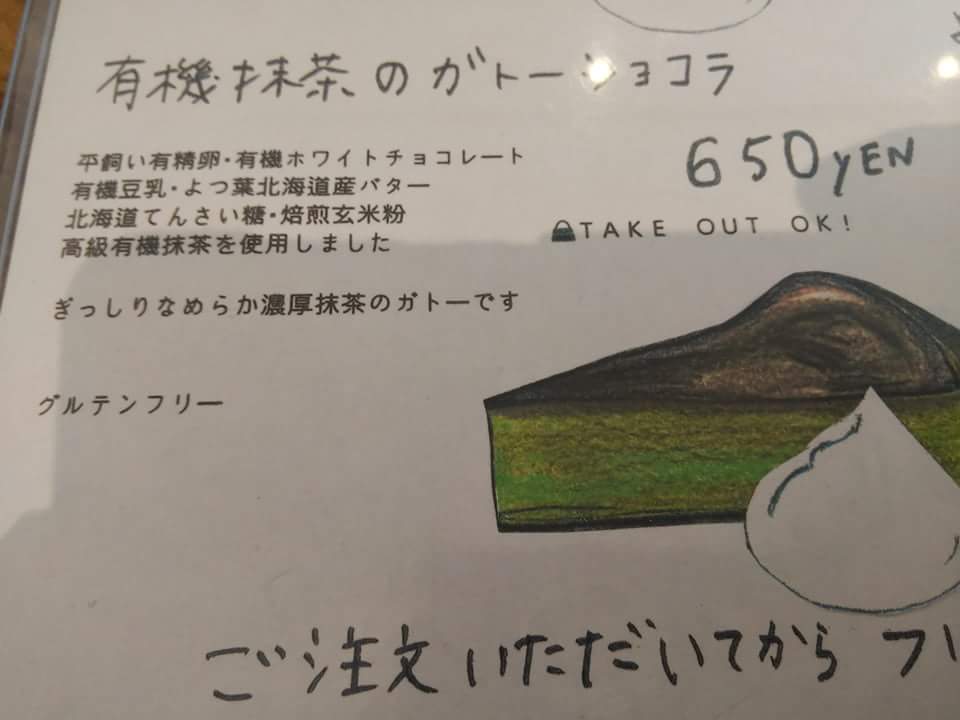 有機抹茶のガトーショコラ
平飼い有精卵・有機ホワイトチョコレート
有機豆乳・よつ葉北海道産バター
北海道てんさい糖・焙煎玄米粉
高級有機抹茶を使用しました
650YEN
TAKE OUT OK!
ぎっしりなめらか濃厚抹茶のガトーです
グルテンフリー
ご注文いただいてから